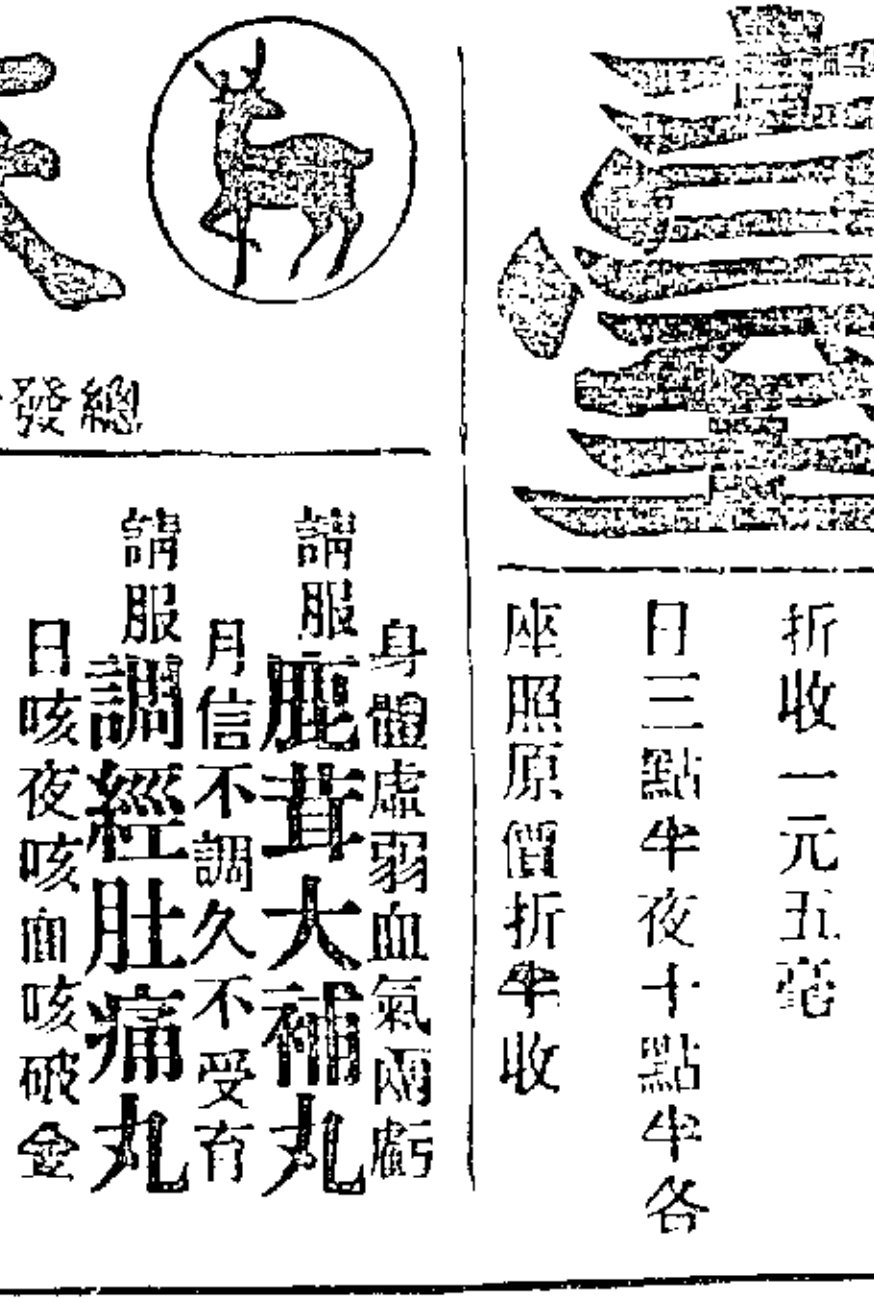 折收一元五毫
日三點半夜十點半各
座照原價折半收
總發
身體虛弱血氣兩虧
請服鹿茸大補丸
月信不調久不受育
請服調經肚痛丸
日咳夜咳血咳破金